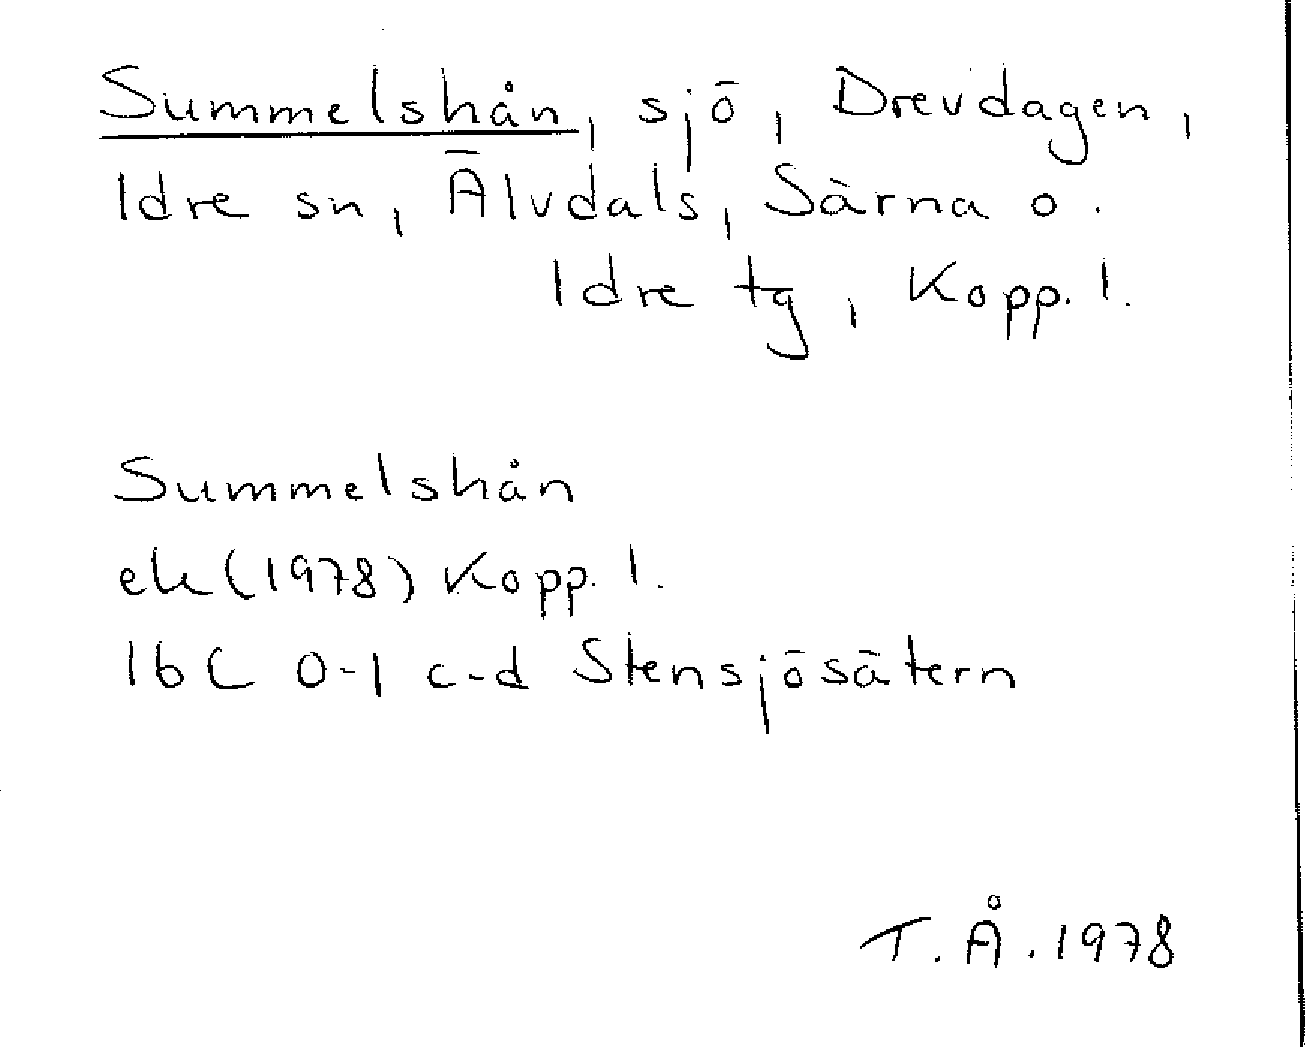 Summelshån, sjö, Drevdagen,
Idre sn, Älvdals, Särna o.
Idre tg, Kopp. l.
Summelshån
ek (1978) Kopp. l.
16C 0-1 c-d Stensjösätern
T. Å. 1978